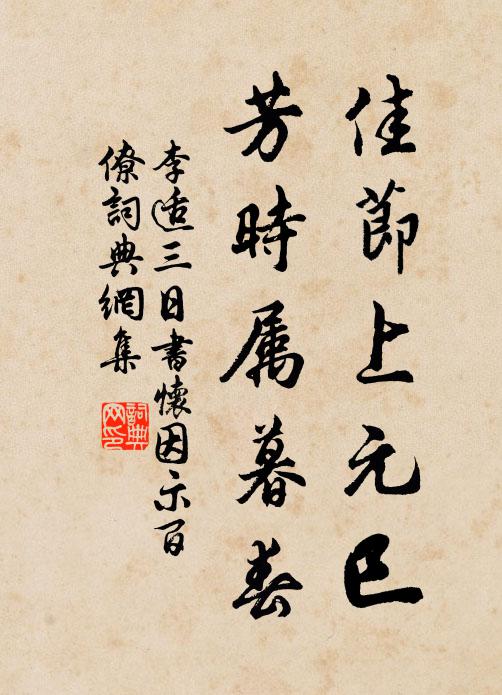 佳節上元巳
芳時属暮春
李适三日書懷因示百
僚詞典網集
詞典
网印